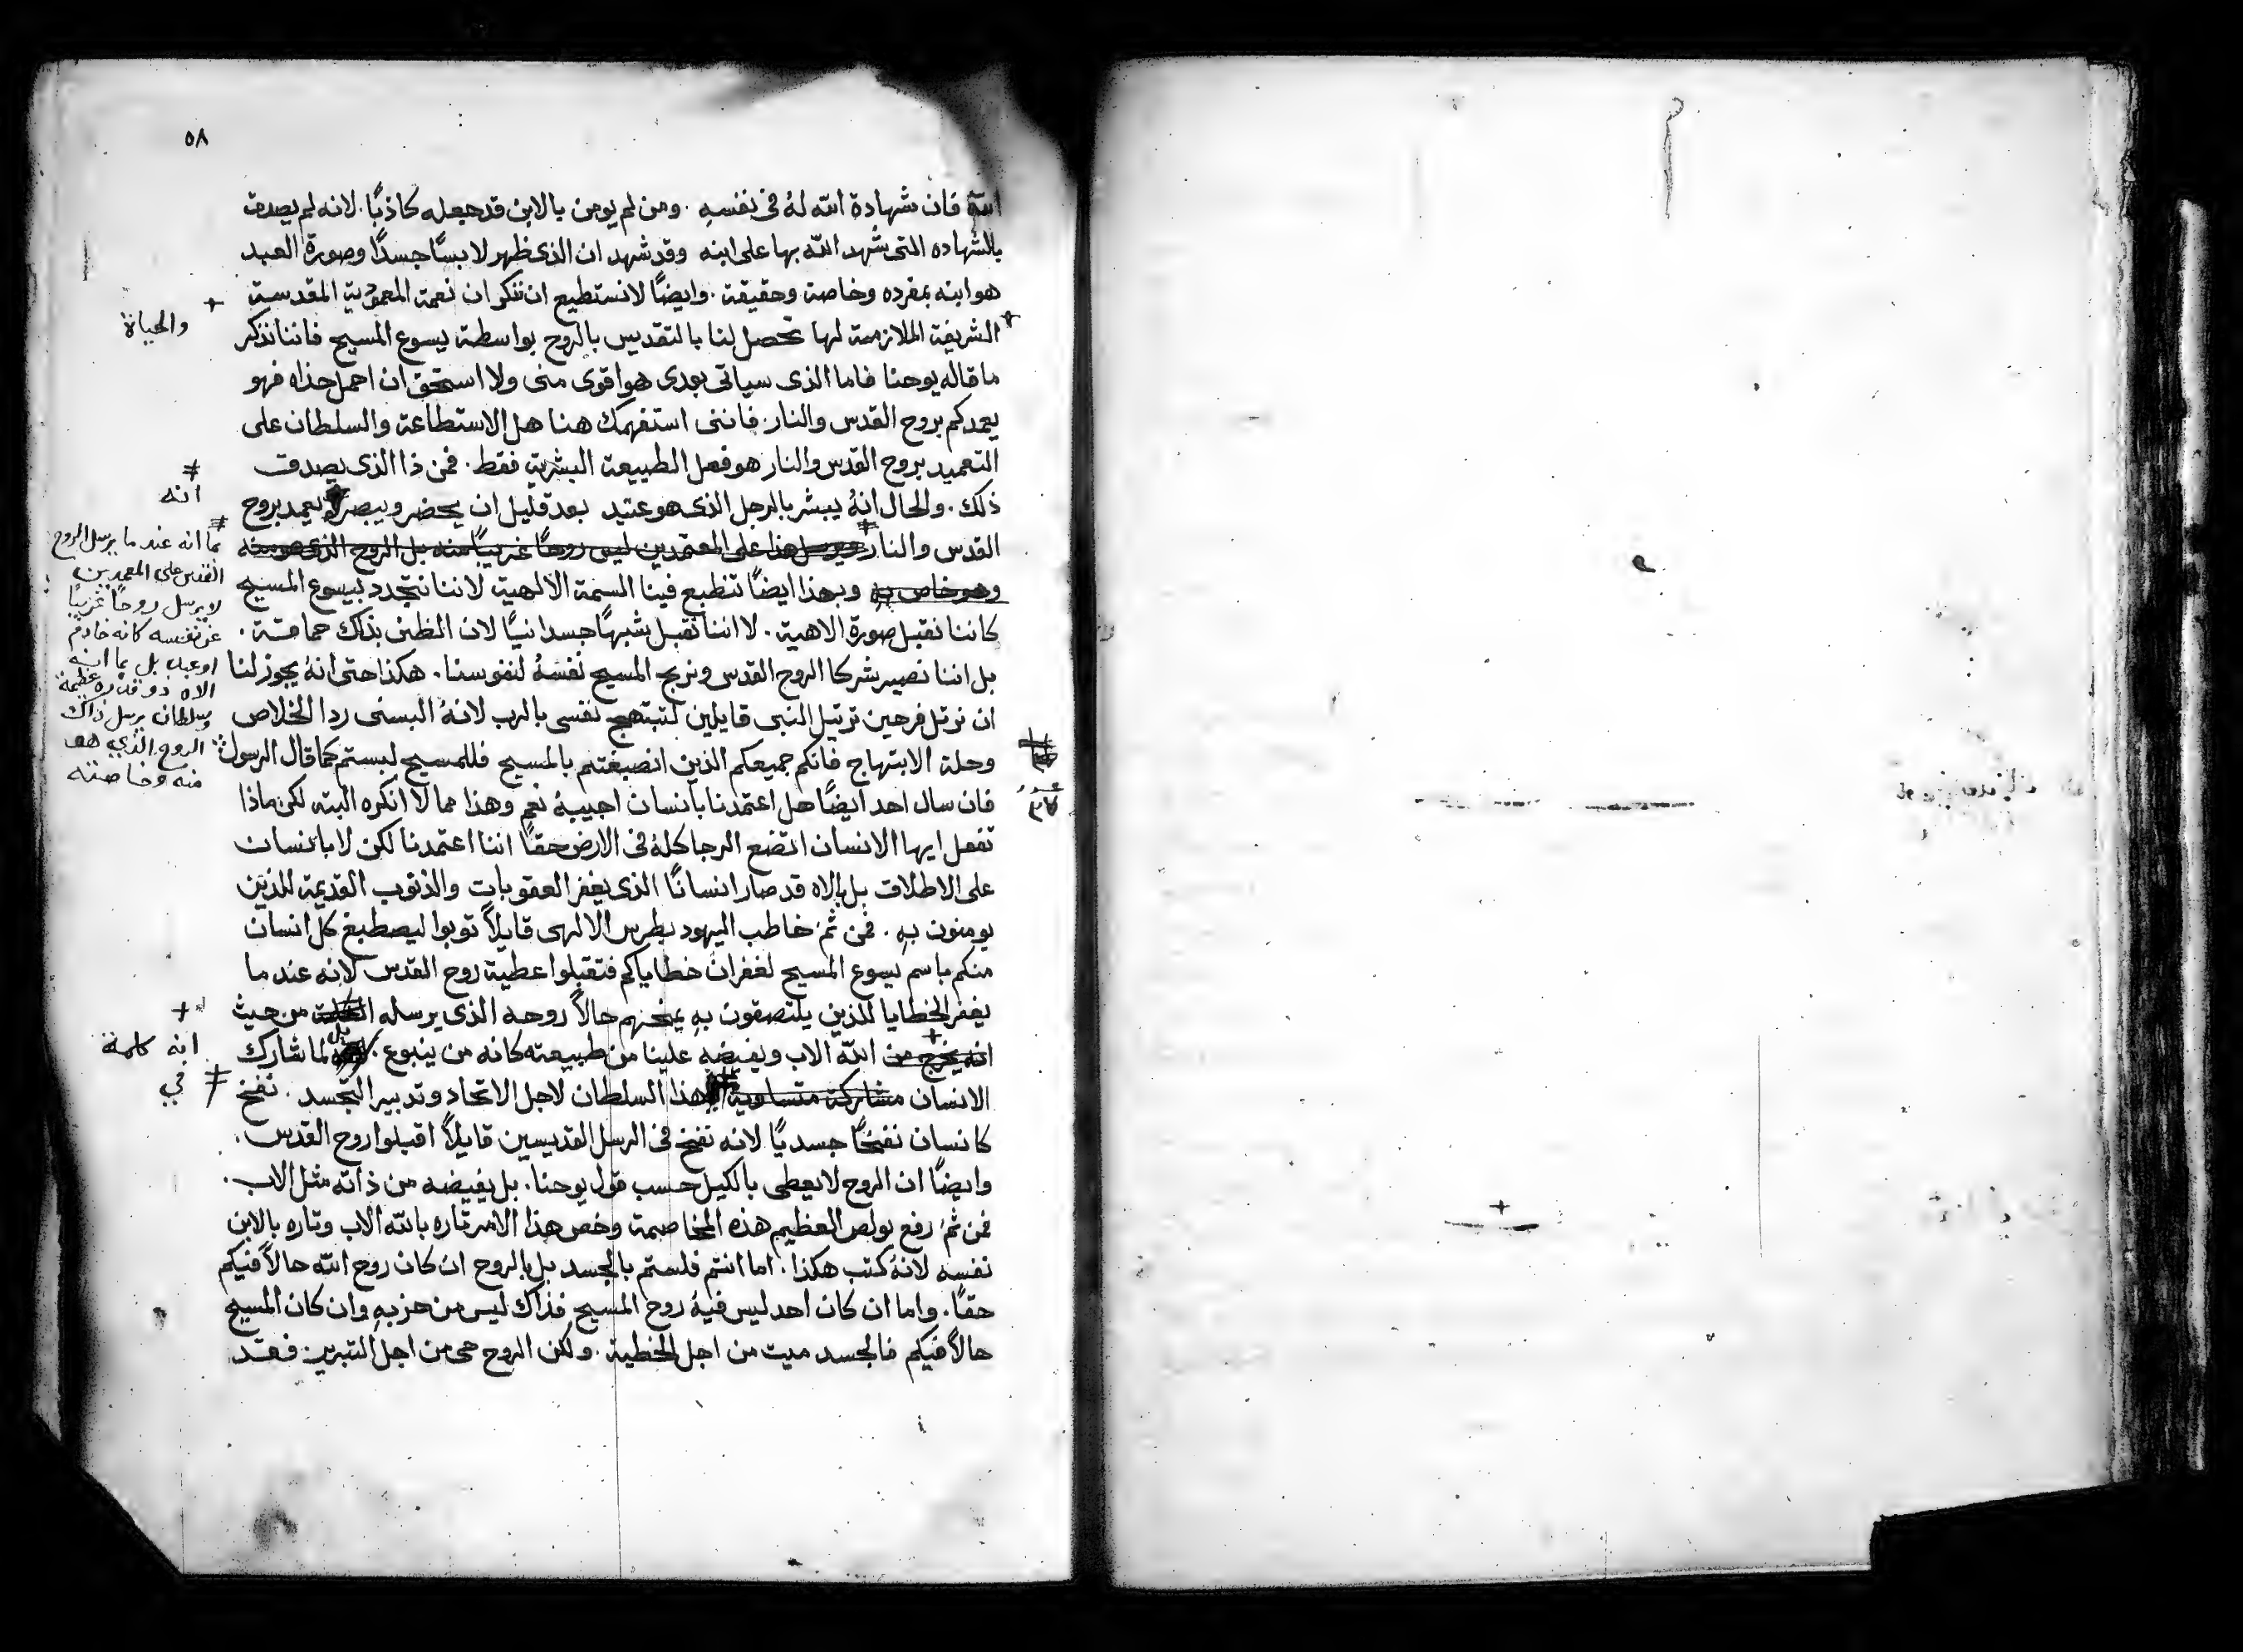 ٥٨
الله فان شهادة الله لهُ فى نفسهِ . ومن لم يومن بالابن قد جعله كاذبًا . لانه لم يصدق
بالشهاده التى شهد الله بها على ابنه وقد شهد ان الذى ظهر لابسًا جسدًا وصورة العبد
هو ابنه بمفرده وخاصة وحقيقة . وايضًا لا نستطيع ان ننكر ان نعمة المعمودية المقدسة
+ والحياة
الشريفة الملازمة لها تحصل لنا بالتقديس بالروح بواسطة يسوع المسيح فاننا نذكر
ما قاله يوحنا فاما الذى سياتى بعدى هو اقوى منى ولا استحق ان احمل حذاه فهو
يعمدكم بروح القدس والنار . فاننى استفهمك هنا هل الاستطاعة والسلطان على
التعميد بروح القدس والنار هو فعل الطبيعة البشرية فقط . فمن ذا الذى يصدق
ذلك . والحال انهُ يبشر بالرجل الذى هو عتيد بعد قليل ان يحضر ويبصر يعمد بروح
القدس والنار ويرسل هذا على المعتمدين ليس روحًا غريبًا منه بل الروح الذى هو منه
وهو خاص به وبهذا ايضًا تنطبع فينا السمة الالهية لاننا نتجدد بيسوع المسيح
كاننا نقبل صورة الاهية . لا اننا نقبل شبهًا جسدانيًا لان الظن بذلك حماقة .
بل اننا نصير شركا الروح القدس ونربح المسيح نفسهُ لنفوسنا . هكذا حتى انهُ يجوز لنا
ان نرتل فرحين ترتيل النبى قايلين لتبتهج نفسى بالرب لانهُ البسنى ردا الخلاص
وحلة الابتهاج فانكم جميعكم الذين انصبغتم بالمسيح فللمسيح لبستم كما قال الرسول
فان سال احد ايضًا هل اعتمدنا بانسان اجيبهُ نعم وهذا مما لا انكره البته لكن ماذا
تفعل ايها الانسان اتضع الرجا كلهُ فى الارض حقًا اننا اعتمدنا لكن لا بانسان
على الاطلاق بل بالاه قد صار انسانًا الذى يغفر العقوبات والذنوب القديمة للذين
يومنون بهِ . فمن ثمَّ خاطب اليهود بطرس الالهى قايلاً توبوا ليصطبغ كل انسان
منكم باسم يسوع المسيح لغفران خطاياكم فتقبلوا عطية روح القدس لانه عند ما
يغفر الخطايا للذين يلتصقون بهِ يمنحهم حالاً روحه الذى يرسله من حيث
انه يخرج من الله الاب ويفيضهِ علينا من طبيعته كانه من ينبوع . بل لما شارك
الانسان مشاركة متساوية هذا السلطان لاجل الاتحاد وتدبير التجسد . نفخ
كانسان نفخًا جسديًا لانه نفخ فى الرسل القديسين قايلاً اقبلوا روح القدس .
وايضًا ان الروح لا يعطى بالكيل حسب قول يوحنا . بل يفيضه من ذاته مثل الاب .
فمن ثمَّ رفع بولص العظيم هذه المخاصمة وخص هذا الامر تاره بالله الاب وتاره بالابن
نفسه لانهُ كتب هكذا . اما انتم فلستم بالجسد بل بالروح ان كان روح الله حالاً فيكم
حقًا . واما ان كان احد ليس فيهُ روح المسيح فذاك ليس من حزبهِ وان كان المسيح
حالاً فيكم فالجسد ميت من اجل الخطية . ولكن الروح حى من اجل التبرير فقد
انه
بما انه عند ما يرسل الروح
القدس على المعمدين
لا يرسل روحًا غريبًا
عن نفسه كانه خادم
او عبد بل بما انه
الاه ذو قدره عظيمة
وسلطان يرسل ذاك
الروح الذي هو
منه وخاصته
+
انه كلمة
في